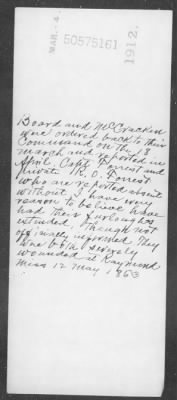 MAR. -4.
50575161
1912.
Board and McCracken
were ordered back to their
Command on the 13
march and reported in
April. Capt Forrest and
private R. C. Forrest
who are reported absent
without I have every
reason to believe have
had their furloughs
extended, though not
officially informed. They
were both severely
wounded at Raymond
Miss 12 May 1863